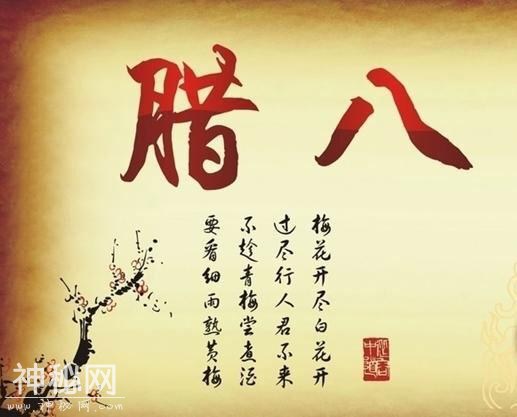 腊八
梅花开尽白花开
过尽行人君不来
不趁青梅尝煮酒
要看细雨熟黄梅
神秘网